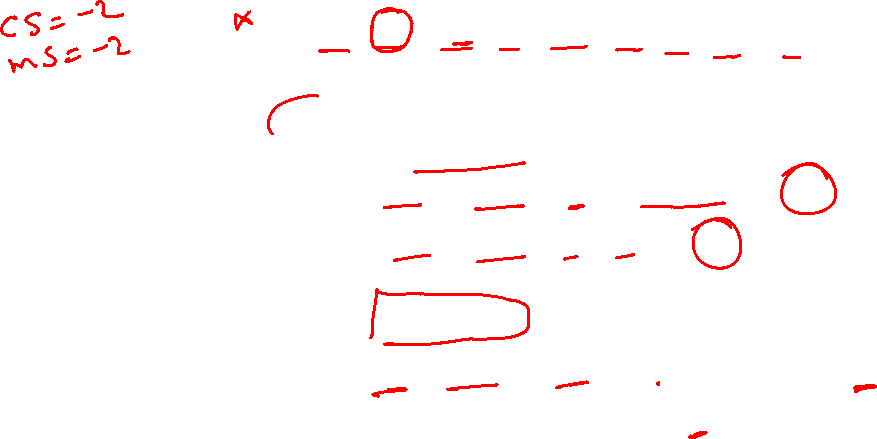 CS = -2
mS = -2